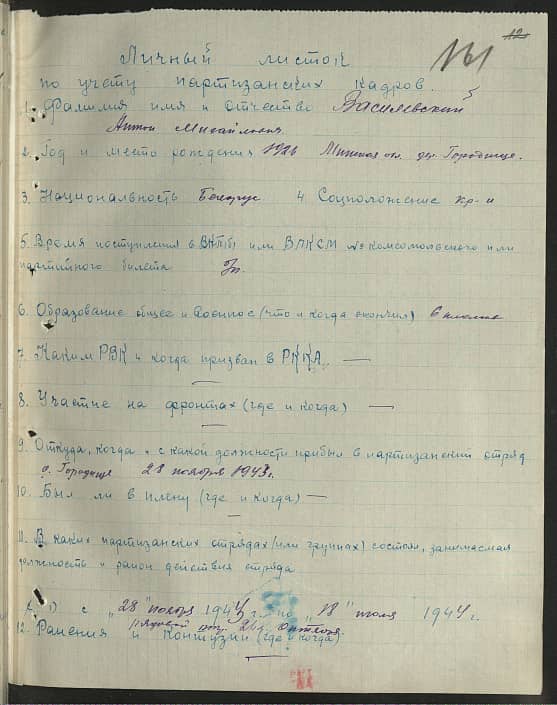 12
Личный листок
по учету партизанских кадров.
1. Фамилия имя и отчество Василевский
Антон Михайлович
2. Год и место рождения 1926 Минская обл. дер. Городище.
3. Национальность Белорус 4 Соцположение кр-н
5. Время поступления в ВКП(б) или ВЛКСМ № комсомольского или
партийного билета
6. Образование общее и военное (что и когда окончил) 6 классов
7. Каким РВК и когда призван в РККА. —
8. Участие на фронтах (где и когда) —
9. Откуда, когда и с какой должности прибыл в партизанский отряд
д. Городище 28 ноября 1943 г.
10. Был ли в плену (где и когда) —
11. В каких партизанских отрядах (или группах) состоял, занимаемая
должность и район действия отряда
с "28" ноября 1943 г. по "18" июля 1944 г.
рядовой
12. Ранения и контузии (где и когда)